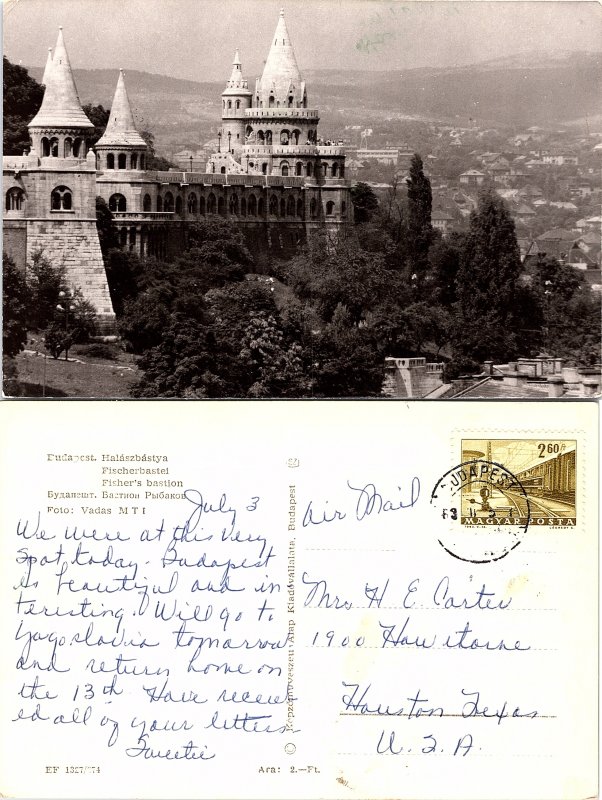 Budapest. Halászbástya
Fischerbastei
Fisher's bastion
Будапешт. Бастион Рыбаков
Foto: Vadas M T I
July 3
We were at this very
spot today. Budapest
is beautiful and in
teresting. Will go to
Yagoslavia tomorrow
and return home on
the 13th Have receiv
ed all of your letters.
Sweetie
EF 1327/774
Ara: 2.–Ft.
Képzőművészeti Alap Kiadóvállalata, Budapest
Air Mail
2 60
MAGYAR POSTA
BUDAPEST
Mrs H E Carter
1900 Hawthorne
Houston Texas
U. S. A.